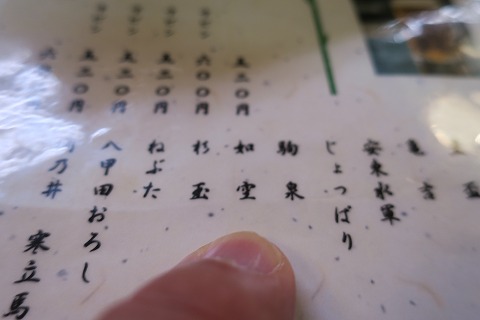 五二〇円
六〇〇円
五二〇円
五二〇円
五二〇円
六
盃
亀吉
安東水軍
じょっぱり
駒泉
如空
杉玉
ねぶた
八甲田おろし
乃井
寒立馬